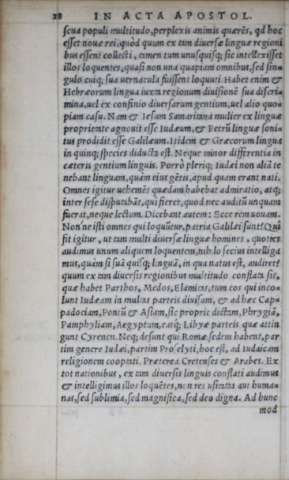 28 IN ACTA APOSTOL.
scua populi multitudo, perplexis animis quærẽs, qd hoc
esset nouæ rei, quòd quum ex tam diuersæ linguæ regioni
bus essent collecti, eimen tum unusquisq; sic intellexisset
illos loquentes, quasi non una quapiam omnibus, sed sin
gulo cuiq; sua uernacula fuissent loquuti. Habet enim &
Hebræorum lingua iuxta regionum diuisionẽ sua discri=
mina, uel ex confinio diuersarum gentium, uel alio quo=
piam casu. Nam & Iesum Samaritana mulier ex lingua
proprietate agnouit esse Iudæum, & Petrũ linguæ soni=
tus prodidit esse Galilæum. Itidem & Græcorum lingua
in quinq; species diducta est. Neque minor differentia in
cæteris gentium linguis. Porrò pleriq; Iudæi non aliã te
nebant linguam, quàm eius gẽtis, apud quam erant nati.
Omnes igitur uehemẽs quædam habebat admiratio, atq;
inter sese disputabãt, qui fieret, quod nec auditũ unquam
fuerat, neque lectum. Dicebant autem: Ecce rem nouam.
Non'ne isti omnes qui loquũtur, patria Galilæi sunt? Qui
fit igitur, ut tam multi diuersæ linguæ homines, quoties
audimus unum aliquem loquentem, nihilo secius intelliga
mus, quàm si suã quisq; linguã, in qua natus est, audiret
quum ex tam diuersis regionibus multitudo conflata sit,
quæ habet Parthos, Medos, Elamitas, tum eos qui inco=
lunt Iudæam in multas partes diuisam, & adhæc Cap=
padociam, Pontũ & Asiam, sic propriè dictam, Phrygiã,
Pamphyliam, Aegyptum, easq; Libyæ parteis quæ attin
gunt Cyrenen. Neq; desunt qui Romæ sedem habent, par
tim genere Iudæi, partim Proselyti, hoc est, ad Iudaicam
religionem cooptati. Præterea Cretenses & Arabes. Ex
tot nationibus, ex tam diuersis linguis conflati audimus
& intelligimus illos loquẽtes, non res usitatas aut huma=
nas, sed sublimia, sed magnifica, sed deo digna. Ad hunc
mod